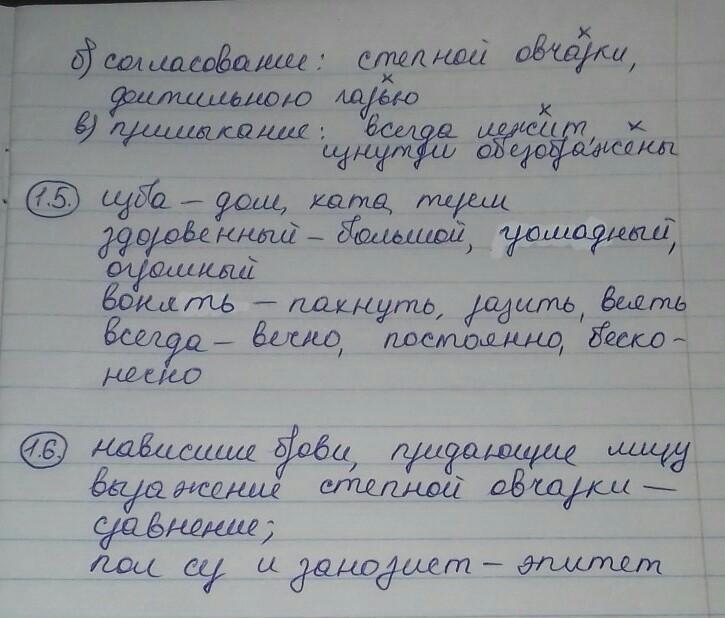 б) согласование: степной овчарки,
доительною лазью
в) примыкание: всегда лежит,
изнутри обезображены
1.5. изба – дом, хата, терем
здоровенный – большой, громадный,
огромный
вонять – пахнуть, разить, веять
всегда – вечно, постоянно, беско-
нечно
1.6. нависшие брови, придающие лицу
выражение степной овчарки –
сравнение;
пол сер и занозист – эпитет